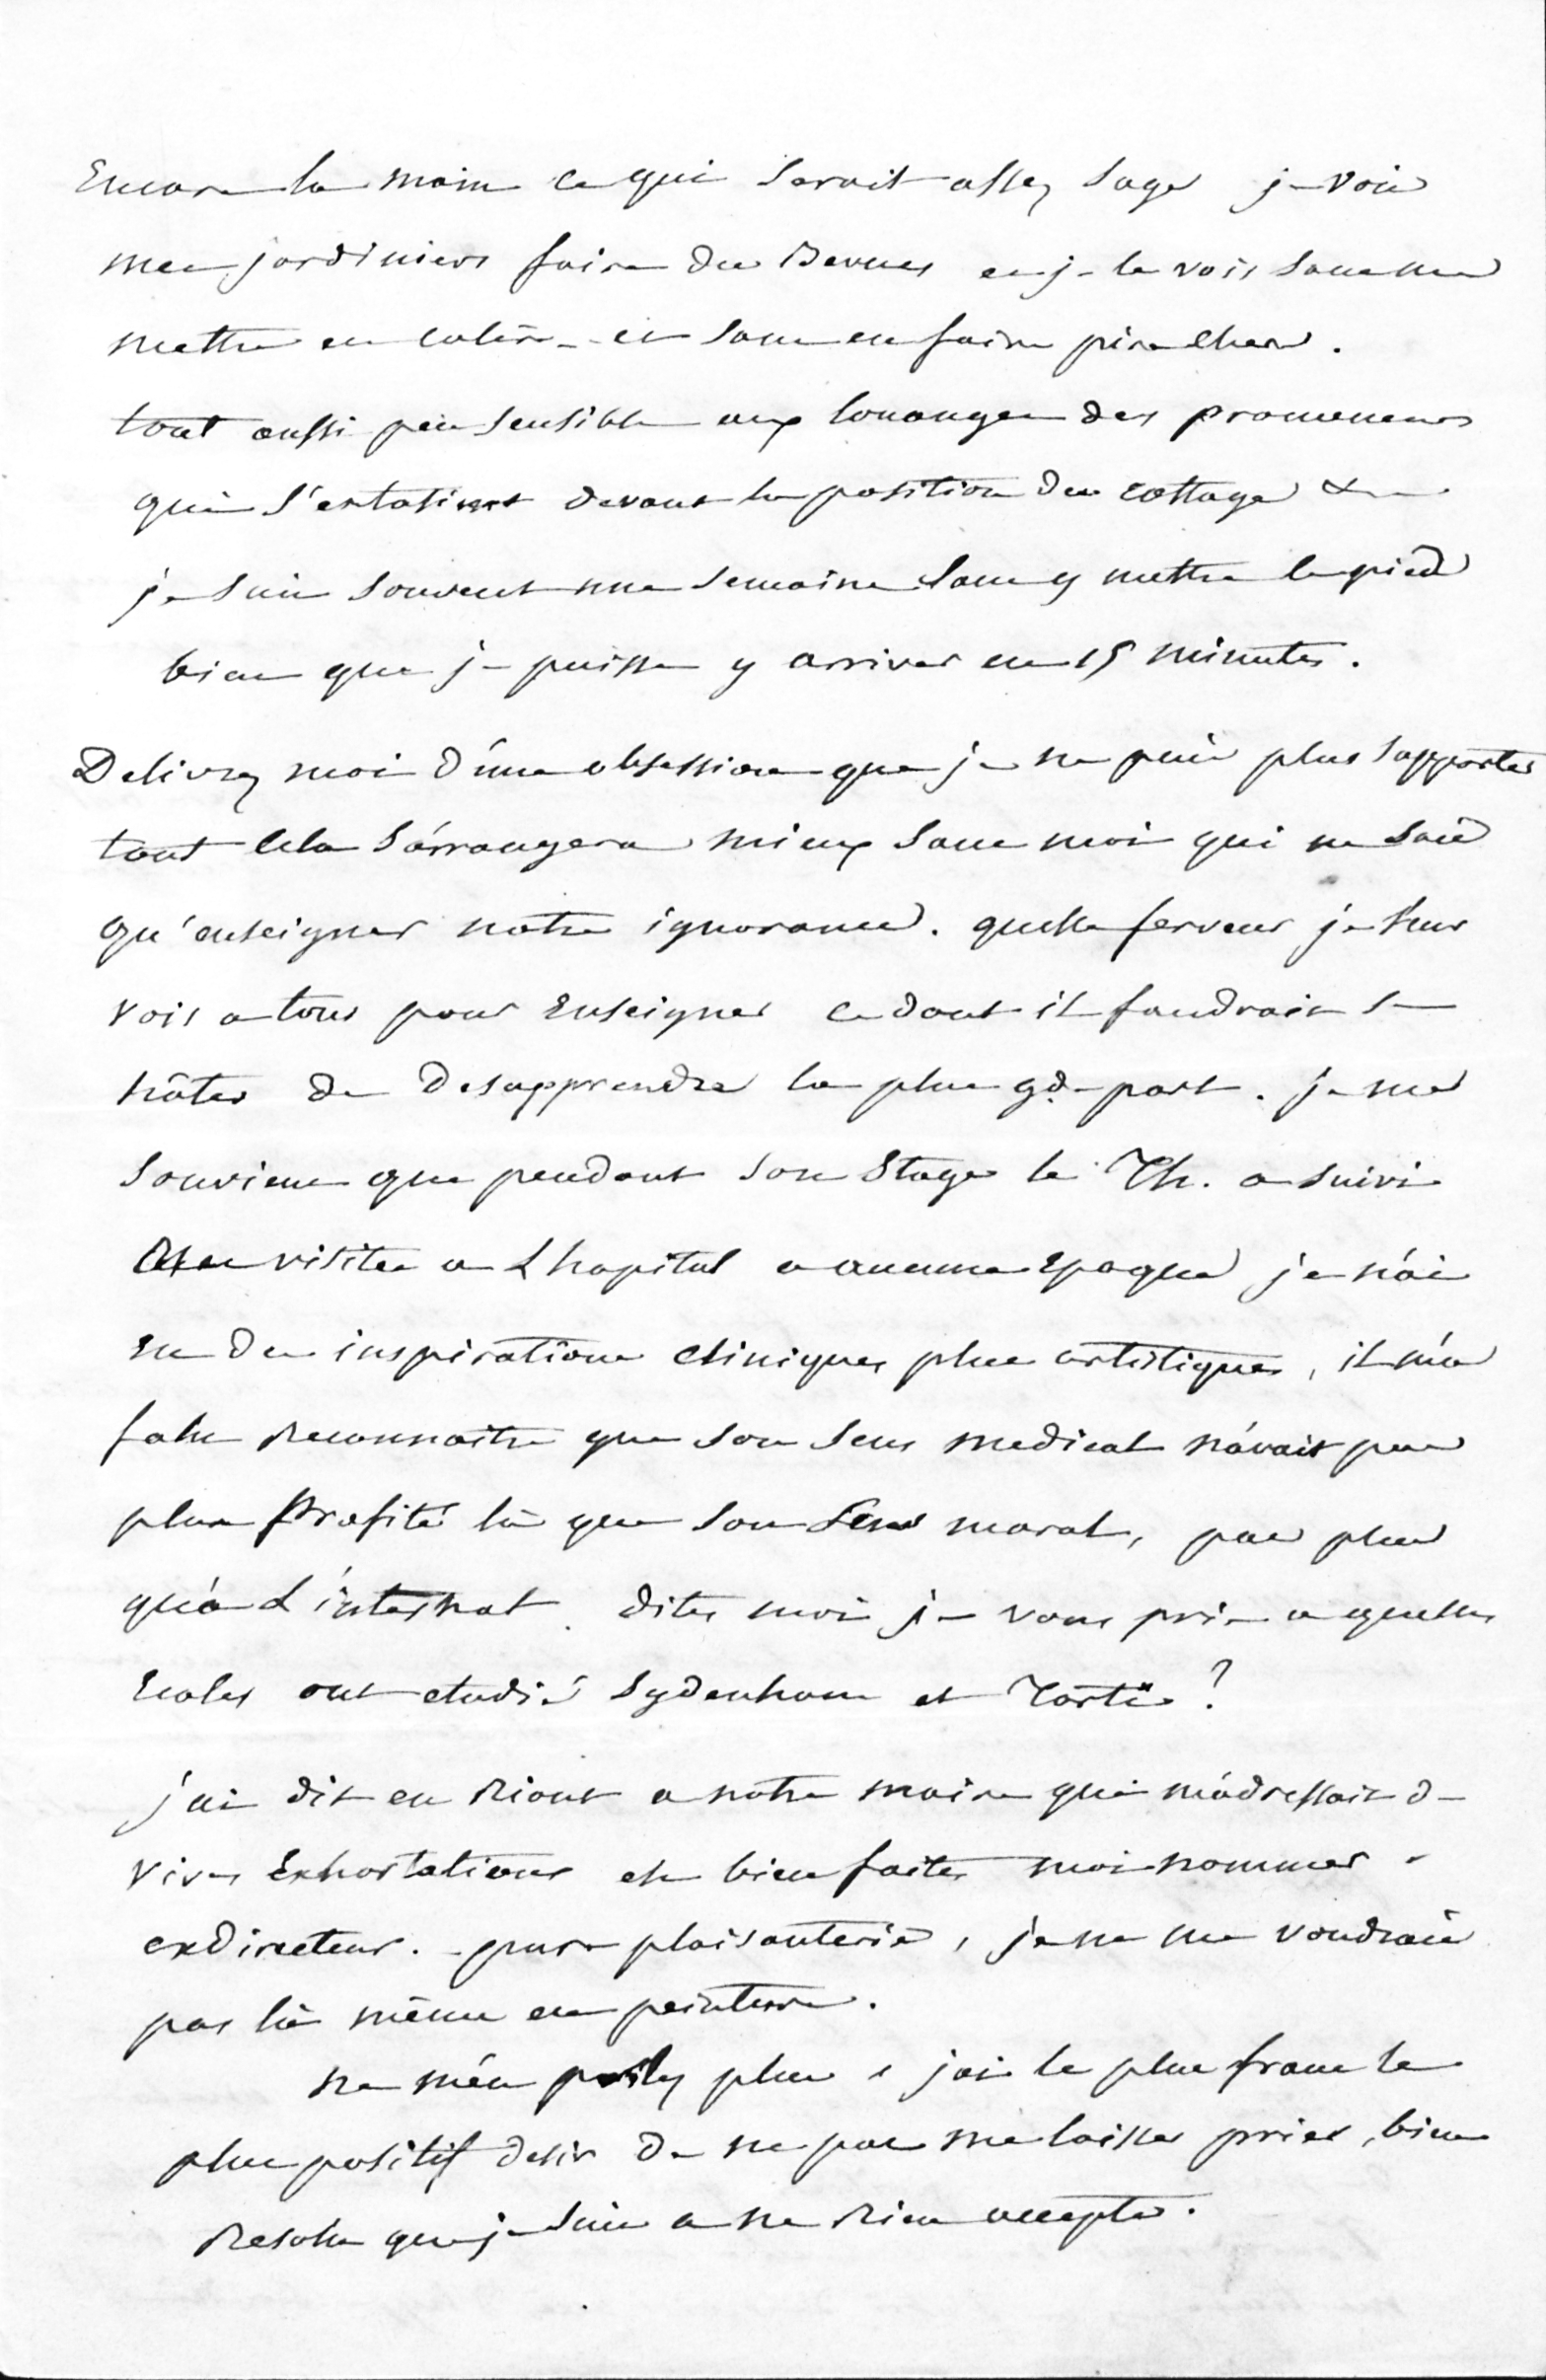 Encore la moin ce qui serait assez sage je vois
mes jardiniers faire des Bevues et je le vois sans me
mettre en colère et sans en faire pire chez.
tout aussi peu sensible aux louanges des promeneurs
qui s'extasient devant la position du cottage &
je suis souvent une semaine sans y mettre le pied
bien que je puisse y arriver en 15 minutes.
Delivrez moi d'une obsession que je ne puis plus supporter
tout cela s'arrangera mieux sans moi qui ne sais
qu'enseigner notre ignorance. quelle ferveur je leur
vois a tous pour enseigner ce dont il faudrait se
hâter de desapprendre la plus gde part. je me
souviens que pendant son stage le Th. a suivi
visites a Lhopital a aucune epoque je n'ai
eu des inspirations cliniques plus artistiques, il m'a
fallu reconnaitre que son sens medical n'avait pas
plus profité là que son sens moral, pas plus
qu'a L'internat. dites moi je vous prie a quelles
Ecoles ont etudié Sydenham et Torti ?
j'ai dit en riant a notre maire qui m'adressait de
vives Exhortations eh bien faites moi nommer
exdirecteur. pure plaisanterie, je ne me voudrais
pas là même en peinture.
ne m'en parlez plus, j'ai le plus franc le
plus positif desir de ne pas me laisser prier, bien
resolu que je suis a ne rien accepter.